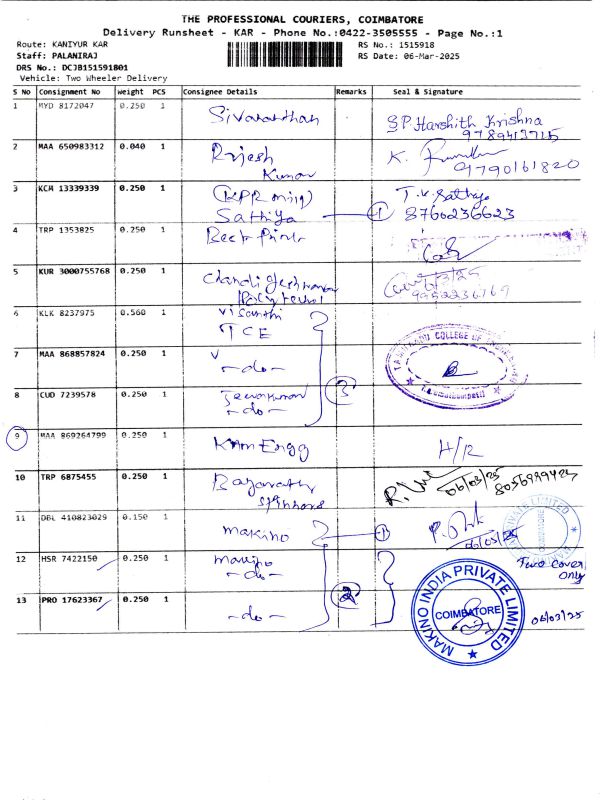 THE PROFESSIONAL COURIERS, COIMBATORE
Delivery Runsheet - KAR - Phone No.:0422-3505555 - Page No.:1
Route: KANIYUR KAR RS No.: 1515918
Staff: PALANIRAJ RS Date: 06-Mar-2025
DRS No.: DCJB151591801
Vehicle: Two Wheeler Delivery
S No Consignment No Weight PCS Consignee Details Remarks Seal & Signature
1 MYD 8172047 0.250 1 Sivananthan S.P. Harshith Krishna
9789413715
2 MAA 650983312 0.040 1 Rajesh Kumar K.
9790161820
3 KCM 13339339 0.250 1 (KPR mill) Sathiya 1 T.K. Sathiya
8760236623
4 TRP 1353825 0.250 1 Best Print
5 KUR 3000755768 0.250 1
9952236769
6 KLK 8237975 0.560 1 Visanthi
TCE
7 MAA 868857824 0.250 1 V
-do-
TAMILNADU COLLEGE OF
8 CUD 7239578 0.250 1 Jeevakumar
-do- 3
9 MAA 869264799 0.250 1 KNM Engg H/R
10 TRP 6875455 0.250 1 06/03/25
8056999423
11 DBL 410823029 0.150 1 makino 1 06/03/25
12 HSR 7422150 0.250 1 makino
-do- Two cover only
13 PRO 17623367 0.250 1 -do- 2
MAKINO INDIA PRIVATE LIMITED
COIMBATORE
06/03/25